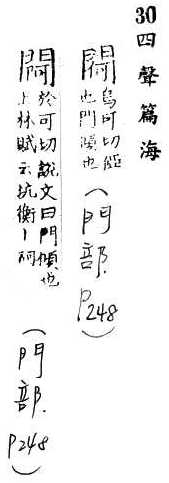 30四聲篇海
閜
烏可切
也門傾也
(門部. P248)
閜
於可切說文曰門傾也
上林賦云坑衡丨砢
(門部. P248)